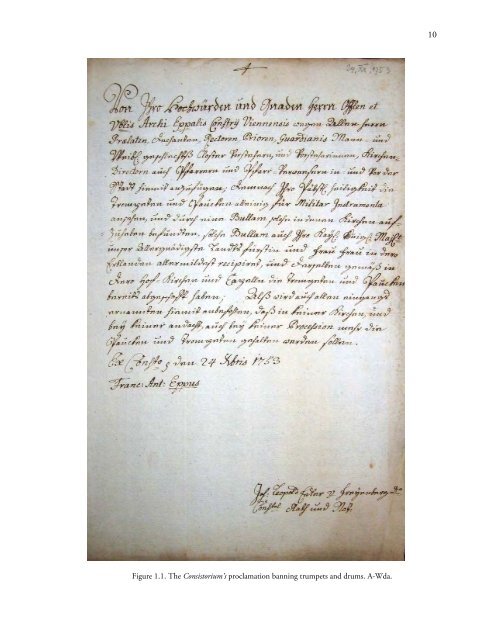 10
24. XII. 1753
Von Ihro Hochwürden und Gnaden Herrn Offlen et
Vblis Archi Eppalis Consttÿ Viennensis wegen denen Herrn
Praelaten, Dechanten, Rectoren, Prioren, Guardianis Mann- und
Weibl. geschlechts Clöster Vorstehern, und Vorsteherinnen, Kirchen-
Directorn auch Pfarrern und Pfarr-Verwesern in- und vor der
Stadt hiemit anzufügen, demnach Ihro Päbstl. Heiligkeit die
Trompeten und Paucken alleinig für Militar Instrumenta
ansehen, und durch eine Bullam solche in denen Kirchen auf-
zuheben befunden, solche Bullam auch Ihro Kayl. Königl. Maÿtt
unser Allergnädigste Landts fürstin und Frau Frau in dero
Erblanden allermildest recipiret, und derselben gemäß in
dero Hof Kirchen und Capellen die Trompeten und Paucken
bereits abgeschafft haben; Alß wird auch allen eingangs
ernannten hiemit anbefohlen, daß in keiner Kirchen, und
beÿ keiner andacht, auch beÿ keiner Procession mehr die
Paucken und Trompeten gehalten werden sollen.
Ex Consto, den 24 Xbris 1753
Franc: Ant: Eppus
Jos: Leopold v: Freÿenberg
Constl Rath und Not:
Figure 1.1. The Consistorium's proclamation banning trumpets and drums. A-Wda.